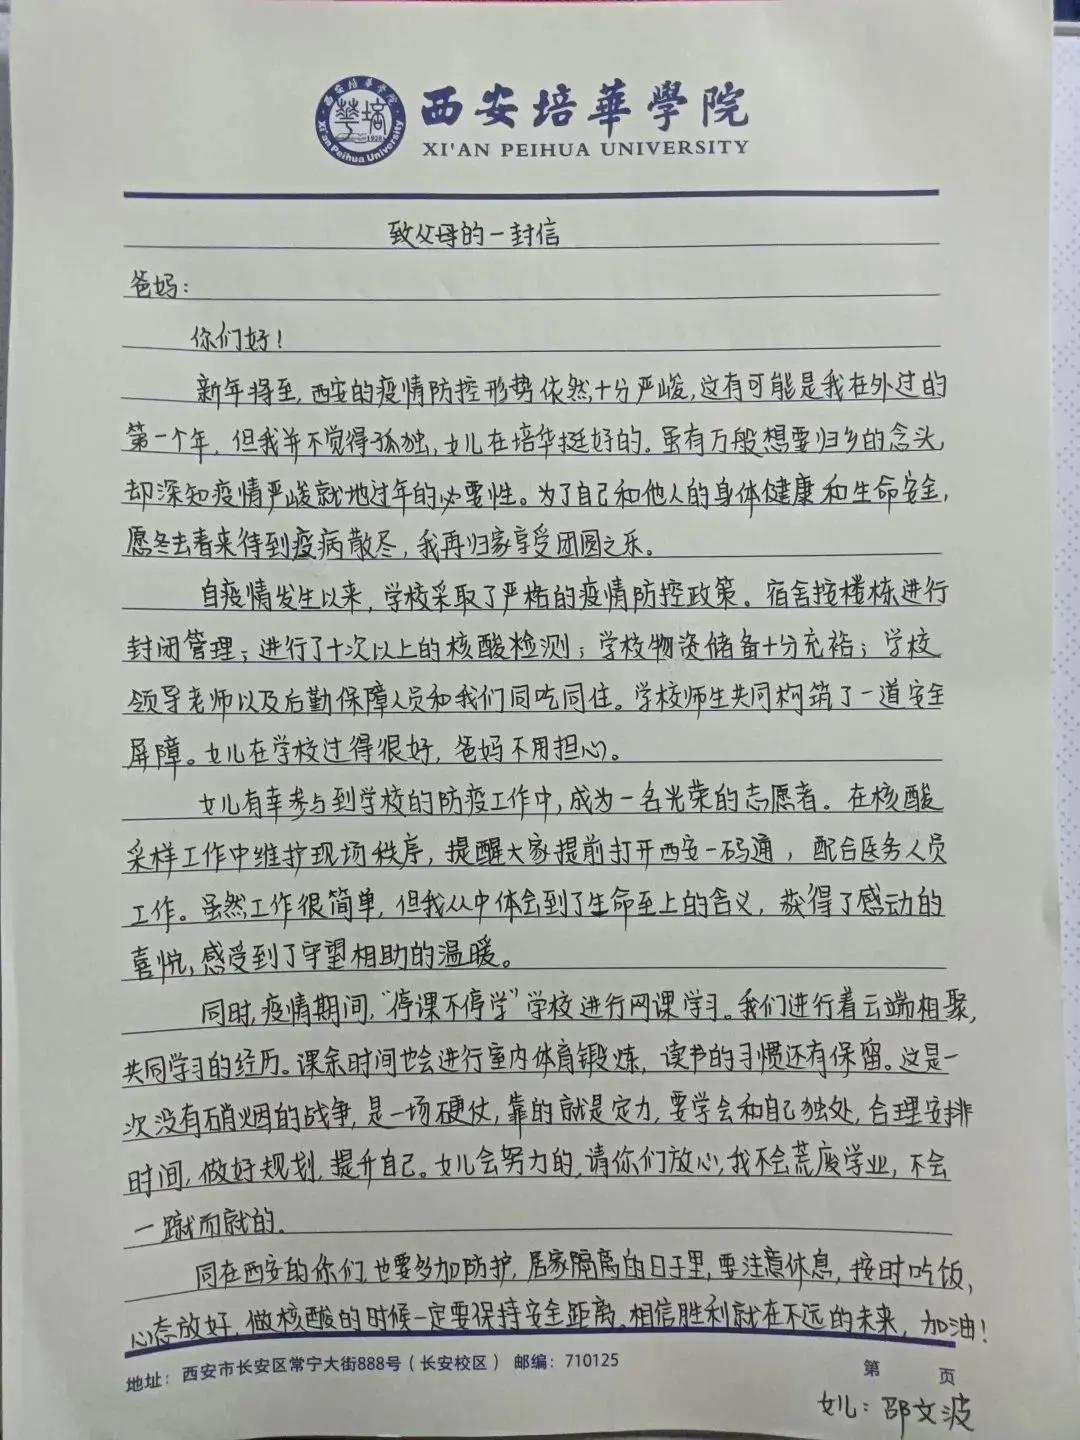 西安培華學院
XI'AN PEIHUA UNIVERSITY
西安培華學院
華培
1928
Xi'an Peihua University
致父母的一封信
爸妈：
你们好！
新年将至，西安的疫情防控形势依然十分严峻，这有可能是我在外过的
第一个年，但我并不觉得孤独，女儿在培华挺好的。虽有万般想要归乡的念头，
却深知疫情严峻就地过年的必要性。为了自己和他人的身体健康和生命安全，
愿冬去春来待到疫病散尽，我再归家享受团圆之乐。
自疫情发生以来，学校采取了严格的疫情防控政策。宿舍按楼栋进行
封闭管理；进行了十次以上的核酸检测；学校物资储备十分充裕；学校
领导老师以及后勤保障人员和我们同吃同住。学校师生共同构筑了一道安全
屏障。女儿在学校过得很好，爸妈不用担心。
女儿有幸参与到学校的防疫工作中，成为一名光荣的志愿者。在核酸
采样工作中维护现场秩序，提醒大家提前打开西安一码通，配合医务人员
工作。虽然工作很简单，但我从中体会到了生命至上的含义，获得了感动的
喜悦，感受到了守望相助的温暖。
同时，疫情期间，“停课不停学”学校进行网课学习。我们进行着云端相聚，
共同学习的经历。课余时间也会进行室内体育锻炼，读书的习惯还有保留。这是一
次没有硝烟的战争，是一场硬仗，靠的就是定力，要学会和自己独处，合理安排
时间，做好规划，提升自己。女儿会努力的，请你们放心，我不会荒废学业，不会
一蹴而就的。
同在西安的你们，也要多加防护，居家隔离的日子里，要注意休息，按时吃饭，
心态放好，做核酸的时候一定要保持安全距离。相信胜利就在不远的未来，加油！
地址：西安市长安区常宁大街888号（长安校区） 邮编：710125
第 页
女儿：邵文波